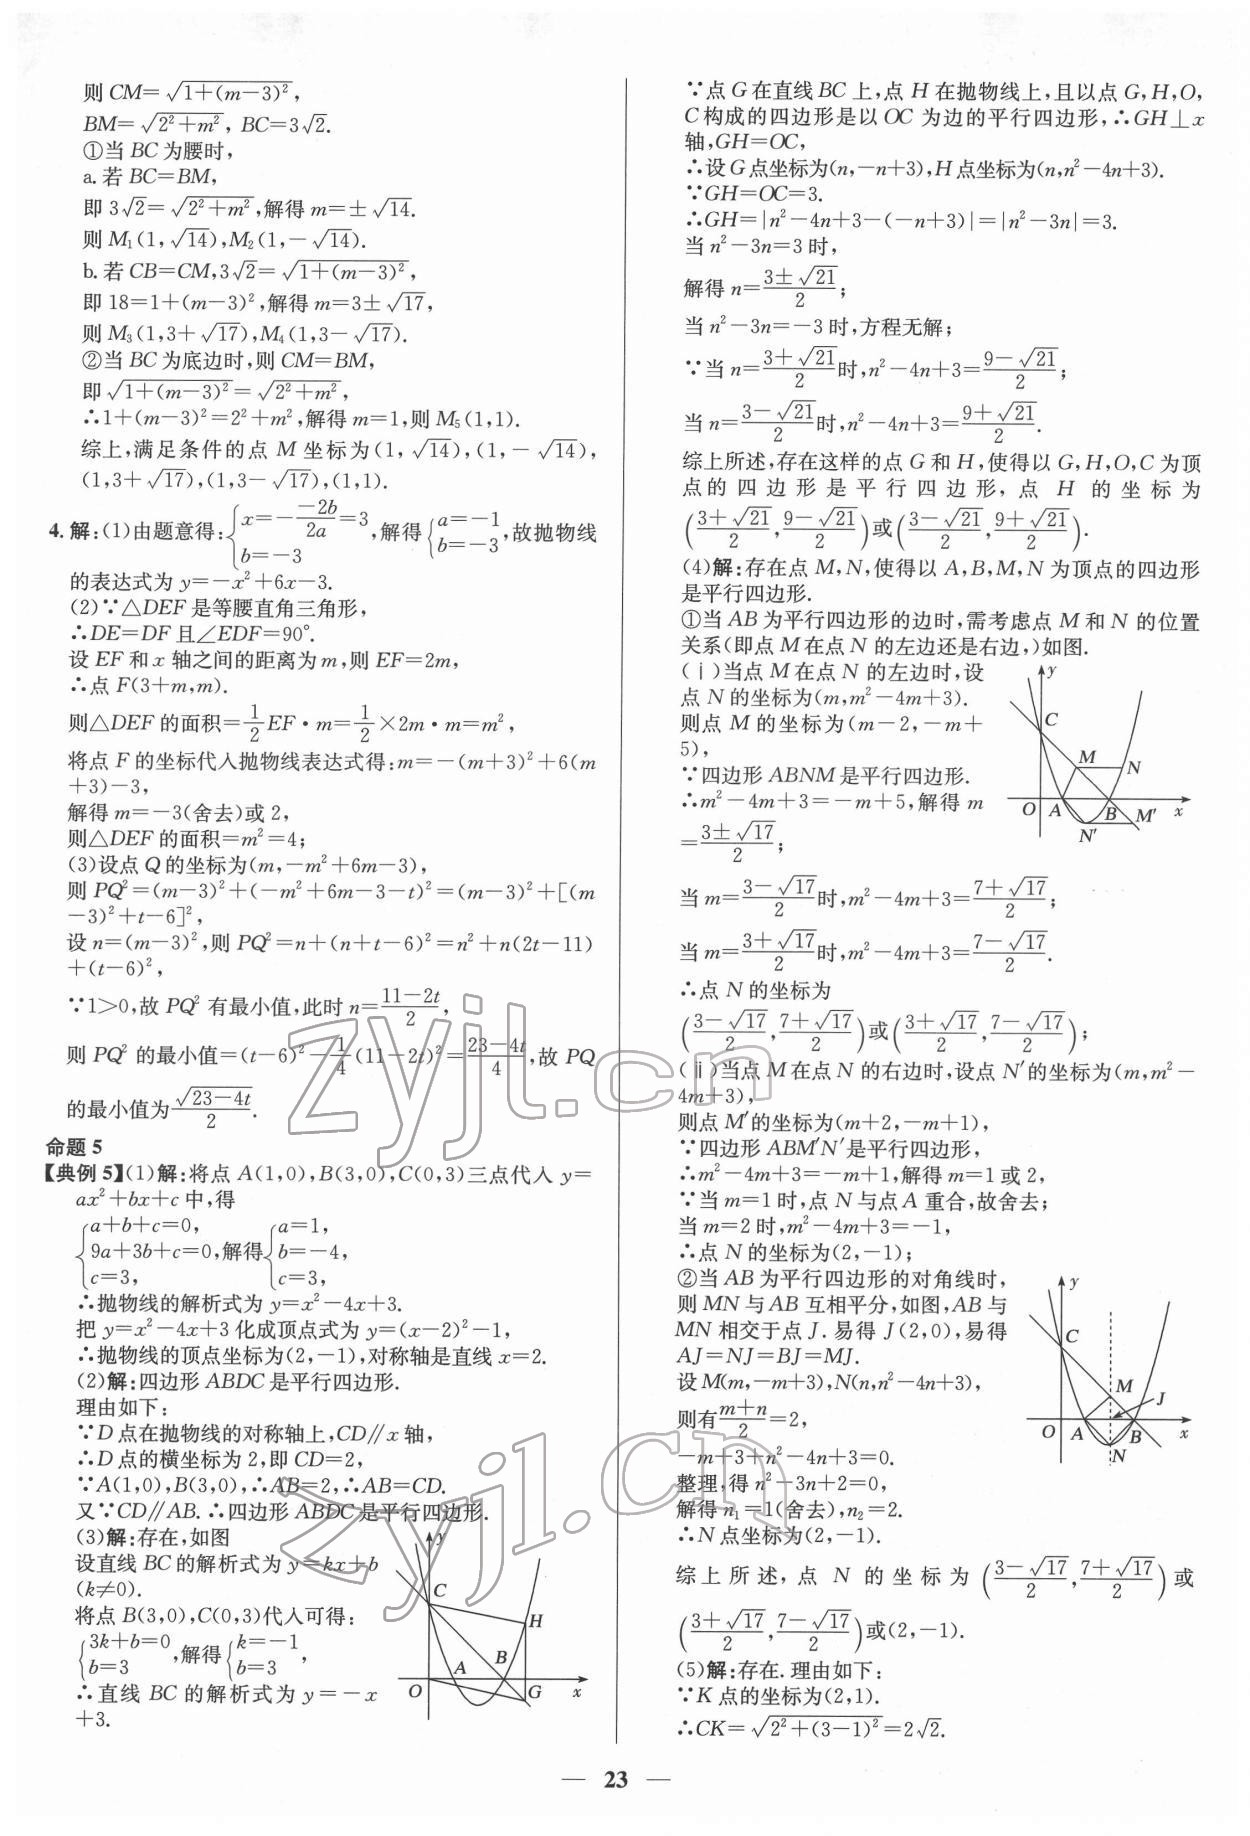 则 CM=√(1+(m-3)²),
BM=√(2²+m²), BC=3√2.
①当 BC 为腰时,
a.若 BC=BM,
即 3√2=√(2²+m²),解得 m=±√14.
则 M₁(1,√14),M₂(1,-√14).
b.若 CB=CM,3√2=√(1+(m-3)²),
即 18=1+(m-3)²,解得 m=3±√17,
则 M₃(1,3+√17),M₄(1,3-√17).
②当 BC 为底边时,则 CM=BM,
即√(1+(m-3)²)=√(2²+m²),
∴1+(m-3)²=2²+m²,解得 m=1,则 M₅(1,1).
综上,满足条件的点 M 坐标为(1,√14),(1,-√14),
(1,3+√17),(1,3-√17),(1,1).
4.解:(1)由题意得:{x=-(-2b)/(2a)=3
b=-3 ,解得{a=-1
b=-3 ,故抛物线
的表达式为 y=-x²+6x-3.
(2)∵△DEF 是等腰直角三角形,
∴DE=DF 且∠EDF=90°.
设 EF 和 x 轴之间的距离为 m,则 EF=2m,
∴点 F(3+m,m).
则△DEF 的面积=1/2 EF·m=1/2×2m·m=m²,
将点 F 的坐标代入抛物线表达式得:m=-(m+3)²+6(m
+3)-3,
解得 m=-3(舍去)或 2,
则△DEF 的面积=m²=4;
(3)设点 Q 的坐标为(m,-m²+6m-3),
则 PQ²=(m-3)²+(-m²+6m-3-t)²=(m-3)²+[(m
-3)²+t-6]²,
设 n=(m-3)²,则 PQ²=n+(n+t-6)²=n²+n(2t-11)
+(t-6)²,
∵1>0,故 PQ² 有最小值,此时 n=(11-2t)/2,
则 PQ² 的最小值=(t-6)²-1/4(11-2t)²=(23-4t)/4,故 PQ
的最小值为√(23-4t)/2.
命题 5
【典例 5】(1)解:将点 A(1,0),B(3,0),C(0,3)三点代入 y=
ax²+bx+c 中,得
{a+b+c=0,
9a+3b+c=0,
c=3, 解得{a=1,
b=-4,
c=3,
∴抛物线的解析式为 y=x²-4x+3.
把 y=x²-4x+3 化成顶点式为 y=(x-2)²-1,
∴抛物线的顶点坐标为(2,-1),对称轴是直线 x=2.
(2)解:四边形 ABDC 是平行四边形.
理由如下:
∵D 点在抛物线的对称轴上,CD∥x 轴,
∴D 点的横坐标为 2,即 CD=2,
∵A(1,0),B(3,0),∴AB=2,∴AB=CD.
又∵CD∥AB.∴四边形 ABDC 是平行四边形.
(3)解:存在,如图
设直线 BC 的解析式为 y=kx+b
(k≠0).
将点 B(3,0),C(0,3)代入可得:
{3k+b=0
b=3 ,解得{k=-1
b=3 ,
∴直线 BC 的解析式为 y=-x
+3.
y
C
H
A
B
O
G
x
∵点 G 在直线 BC 上,点 H 在抛物线上,且以点 G,H,O,
C 构成的四边形是以 OC 为边的平行四边形,∴GH⊥x
轴,GH=OC,
∴设 G 点坐标为(n,-n+3),H 点坐标为(n,n²-4n+3).
∵GH=OC=3.
∴GH=|n²-4n+3-(-n+3)|=|n²-3n|=3.
当 n²-3n=3 时,
解得 n=(3±√21)/2;
当 n²-3n=-3 时,方程无解;
∵当 n=(3+√21)/2时,n²-4n+3=(9-√21)/2;
当 n=(3-√21)/2时,n²-4n+3=(9+√21)/2.
综上所述,存在这样的点 G 和 H,使得以 G,H,O,C 为顶
点的四边形是平行四边形,点 H 的坐标为
((3+√21)/2,(9-√21)/2)或((3-√21)/2,(9+√21)/2).
(4)解:存在点 M,N,使得以 A,B,M,N 为顶点的四边形
是平行四边形.
①当 AB 为平行四边形的边时,需考虑点 M 和 N 的位置
关系(即点 M 在点 N 的左边还是右边,)如图.
(ⅰ)当点 M 在点 N 的左边时,设
点 N 的坐标为(m,m²-4m+3).
则点 M 的坐标为(m-2,-m+
5),
∵四边形 ABNM 是平行四边形.
∴m²-4m+3=-m+5,解得 m
=(3±√17)/2;
y
C
M
N
O
A
B
M′
x
N′
当 m=(3-√17)/2时,m²-4m+3=(7+√17)/2;
当 m=(3+√17)/2时,m²-4m+3=(7-√17)/2.
∴点 N 的坐标为
((3-√17)/2,(7+√17)/2)或((3+√17)/2,(7-√17)/2);
(ⅱ)当点 M 在点 N 的右边时,设点 N′的坐标为(m,m²-
4m+3),
则点 M′的坐标为(m+2,-m+1),
∵四边形 ABM′N′是平行四边形,
∴m²-4m+3=-m+1,解得 m=1 或 2,
∵当 m=1 时,点 N 与点 A 重合,故舍去;
当 m=2 时,m²-4m+3=-1,
∴点 N 的坐标为(2,-1);
②当 AB 为平行四边形的对角线时,
则 MN 与 AB 互相平分,如图,AB 与
MN 相交于点 J.易得 J(2,0),易得
AJ=NJ=BJ=MJ.
设 M(m,-m+3),N(n,n²-4n+3),
则有(m+n)/2=2,
-m+3+n²-4n+3=0.
整理,得 n²-3n+2=0,
解得 n₁=1(舍去),n₂=2.
∴N 点坐标为(2,-1).
y
C
M
J
O
A
B
x
N
综上所述,点 N 的坐标为((3-√17)/2,(7+√17)/2)或
((3+√17)/2,(7-√17)/2)或(2,-1).
(5)解:存在.理由如下:
∵K 点的坐标为(2,1).
∴CK=√(2²+(3-1)²)=2√2.
— 23 —
zyjl.cn
zyjl.cn